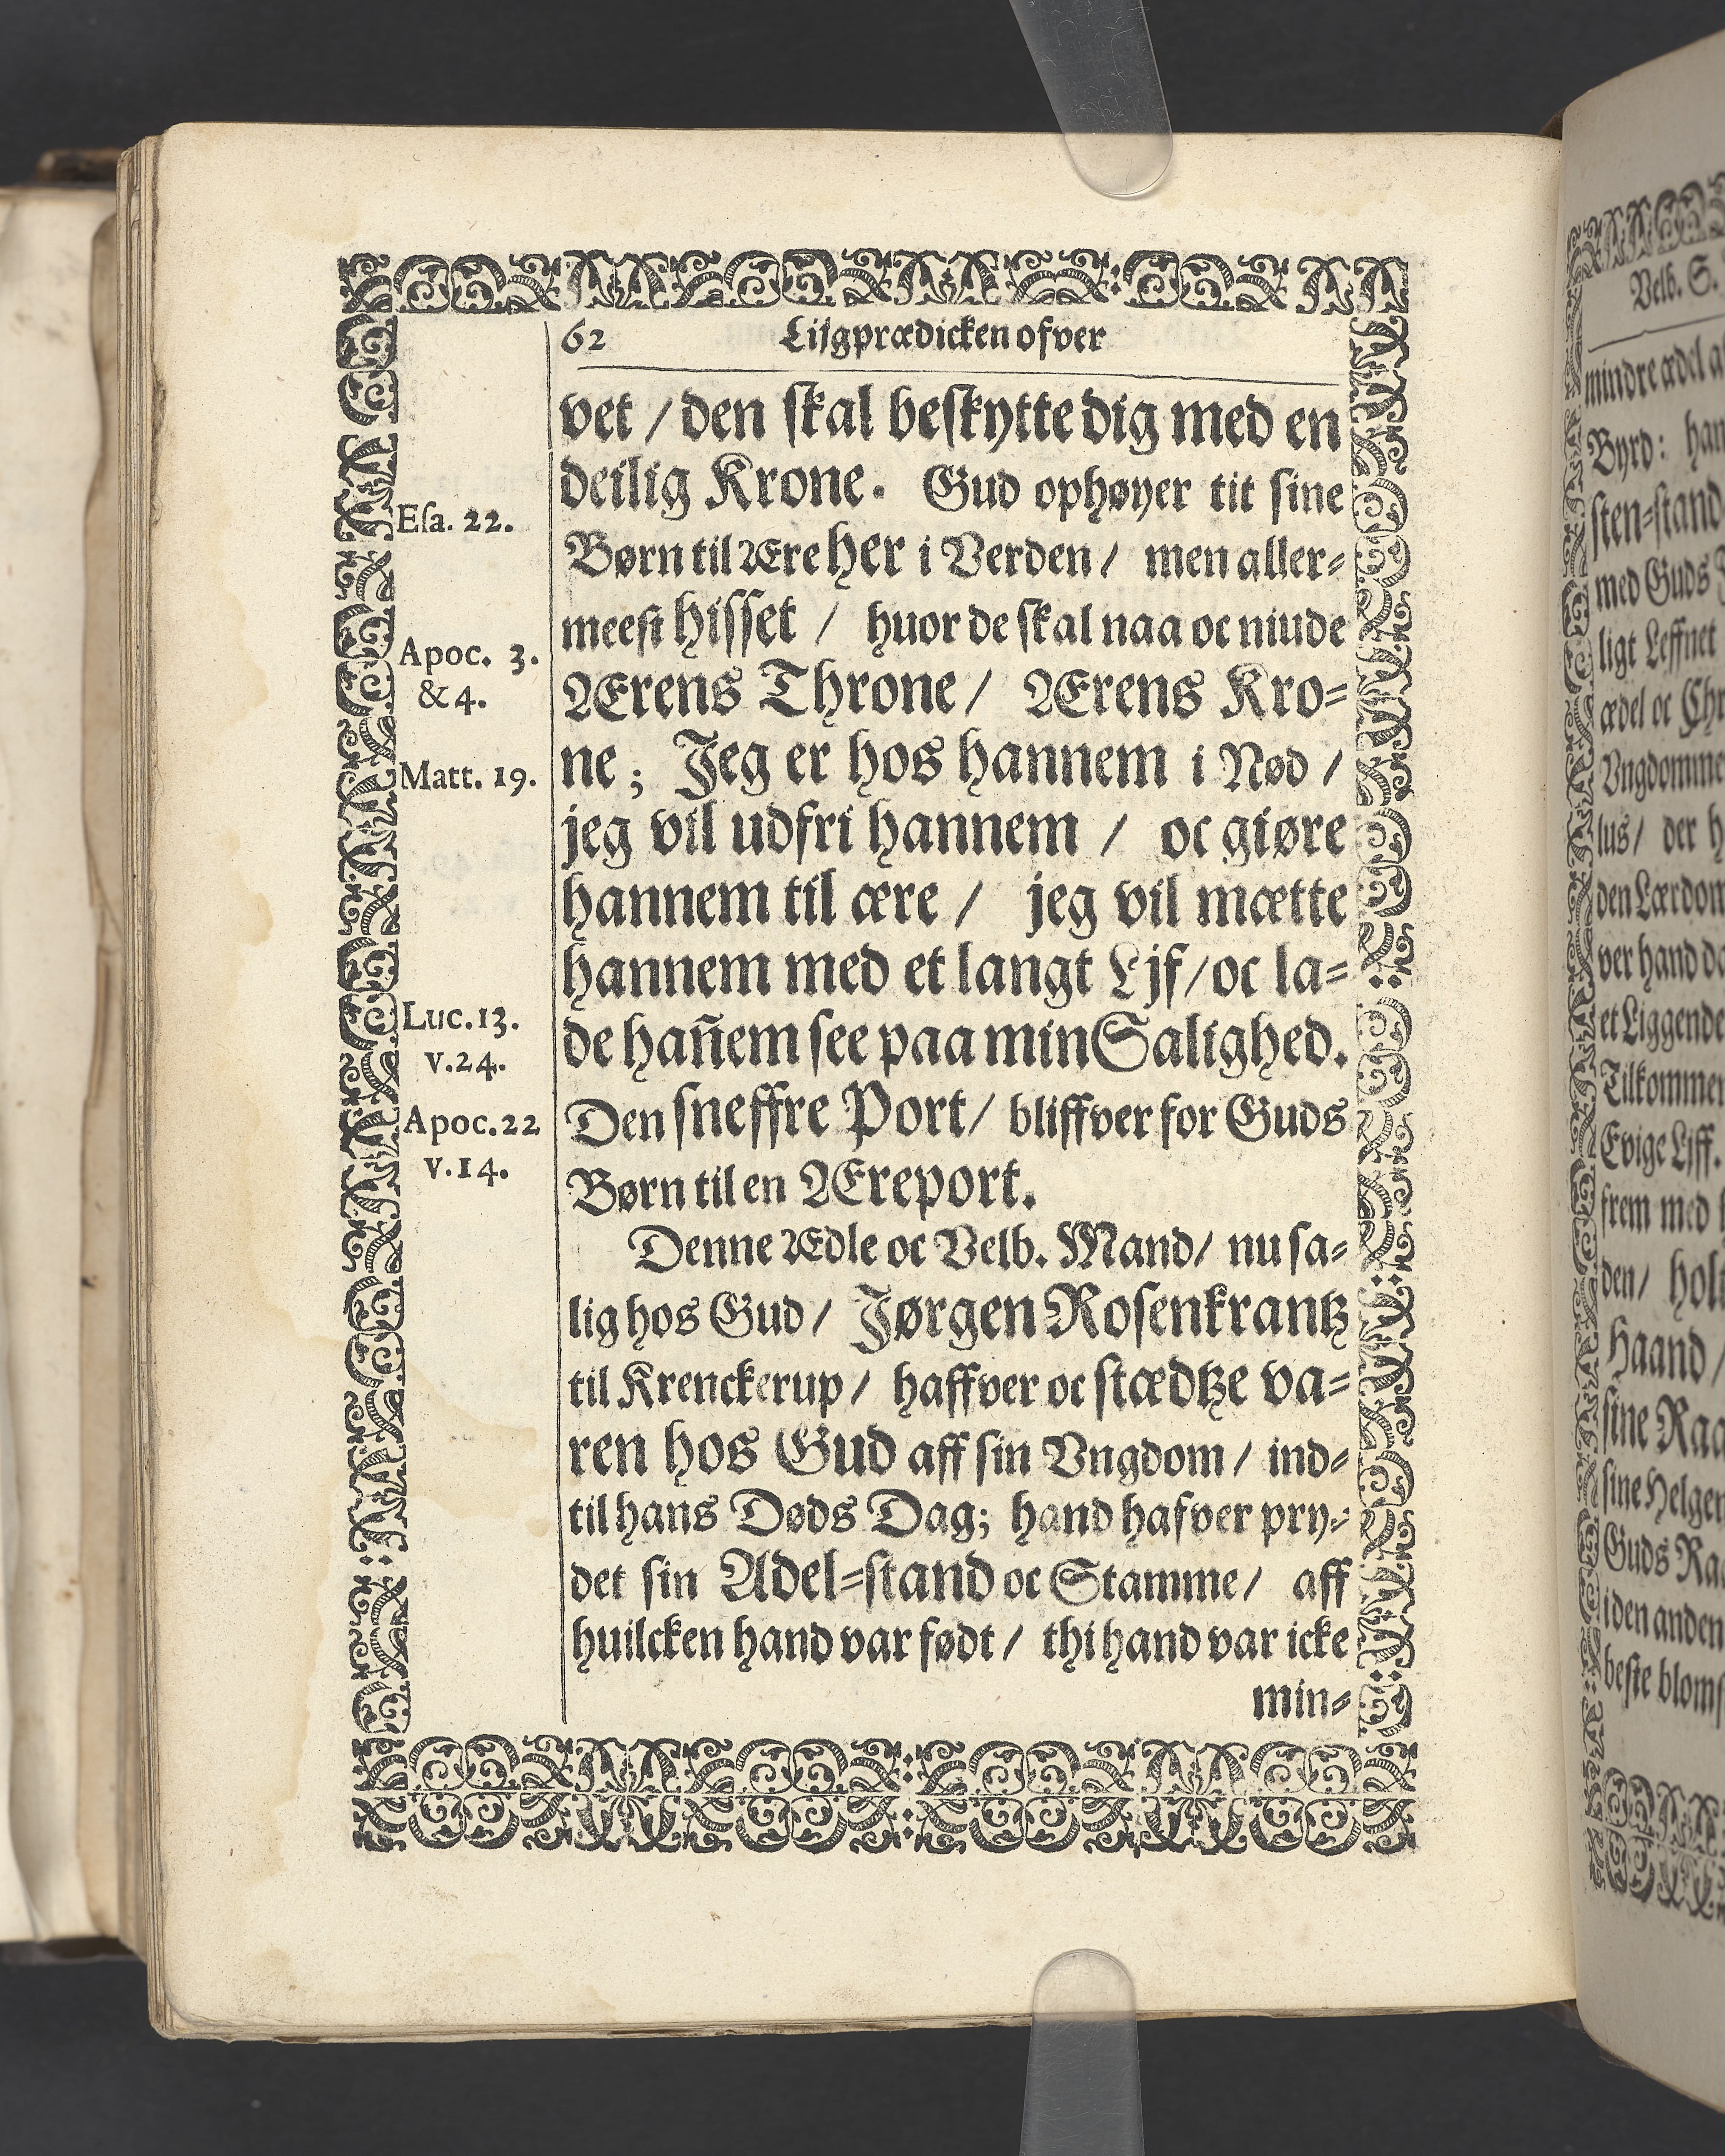 62 Lijgprædicken ofver
vet / den skal beskytte dig med en
deilig Krone. Gud ophøyer tit sine
Børn til Ære her i Verden / men aller-
meest hisset / huor de skal naa oc niude
Ærens Throne / Ærens Kro-
ne; Jeg er hos hannem i Nød /
jeg vil udfri hannem / oc giøre
hannem til ære / jeg vil mætte
hannem med et langt Ljf / oc la-
de hañem see paa min Salighed.
Den sneffre Port / bliffver for Guds
Børn til en Æreport.
Denne Ædle oc Velb. Mand / nu sa-
lig hos Gud / Jørgen Rosenkrantz
til Krenckerup / haffver oc stædtze va-
ren hos Gud aff sin Vngdom / ind-
til hans Døds Dag; hand hafver pry-
det sin Adel-stand oc Stamme / aff
huilcken hand var født / thi hand var icke
min-
Esa. 22.
Apoc. 3.
& 4.
Matt. 19.
Luc. 13.
v. 24.
Apoc. 22
v. 14.
Velb. S.
mindre ædel
Byrd: han
sten-stand
med Guds
ligt Leffnet
ædel oc Chr
Vngdomme
lus / der h
den Lærdom
ver hand da
et Liggende
Tilkommen
Evige Ljff.
frem med
den / hol
Haand /
sine Raa
sine Helgen
Guds Raa
iden anden
beste bloms